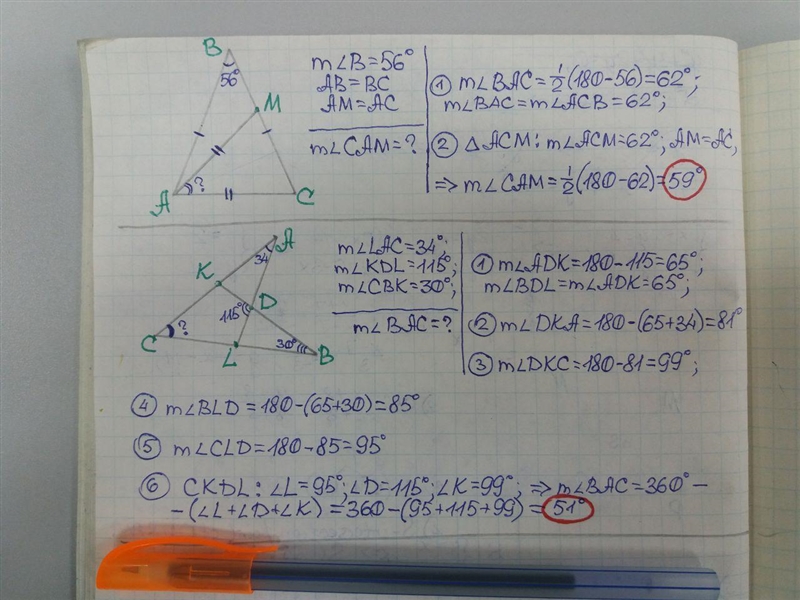 B
56°
M
A
?
C
m∠B=56°
AB=BC
AM=AC
m∠CAM=?
① m∠BAC=½(180-56)=62°;
m∠BAC=m∠ACB=62°;
② △ACM: m∠ACM=62°; AM=AC,
=> m∠CAM=½(180-62)=59°
A
34
K
D
115°
C
?
L
30°
B
m∠LAC=34°;
m∠KDL=115°;
m∠CBK=30°;
m∠BAC=?
① m∠ADK=180-115=65°;
m∠BDL=m∠ADK=65°;
② m∠DKA=180-(65+34)=81°
③ m∠DKC=180-81=99°;
④ m∠BLD=180-(65+30)=85°
⑤ m∠CLD=180-85=95°
⑥ CKDL: ∠L=95°; ∠D=115°; ∠K=99°; => m∠BAC=360°-
-(∠L+∠D+∠K)=360-(95+115+99)=51°